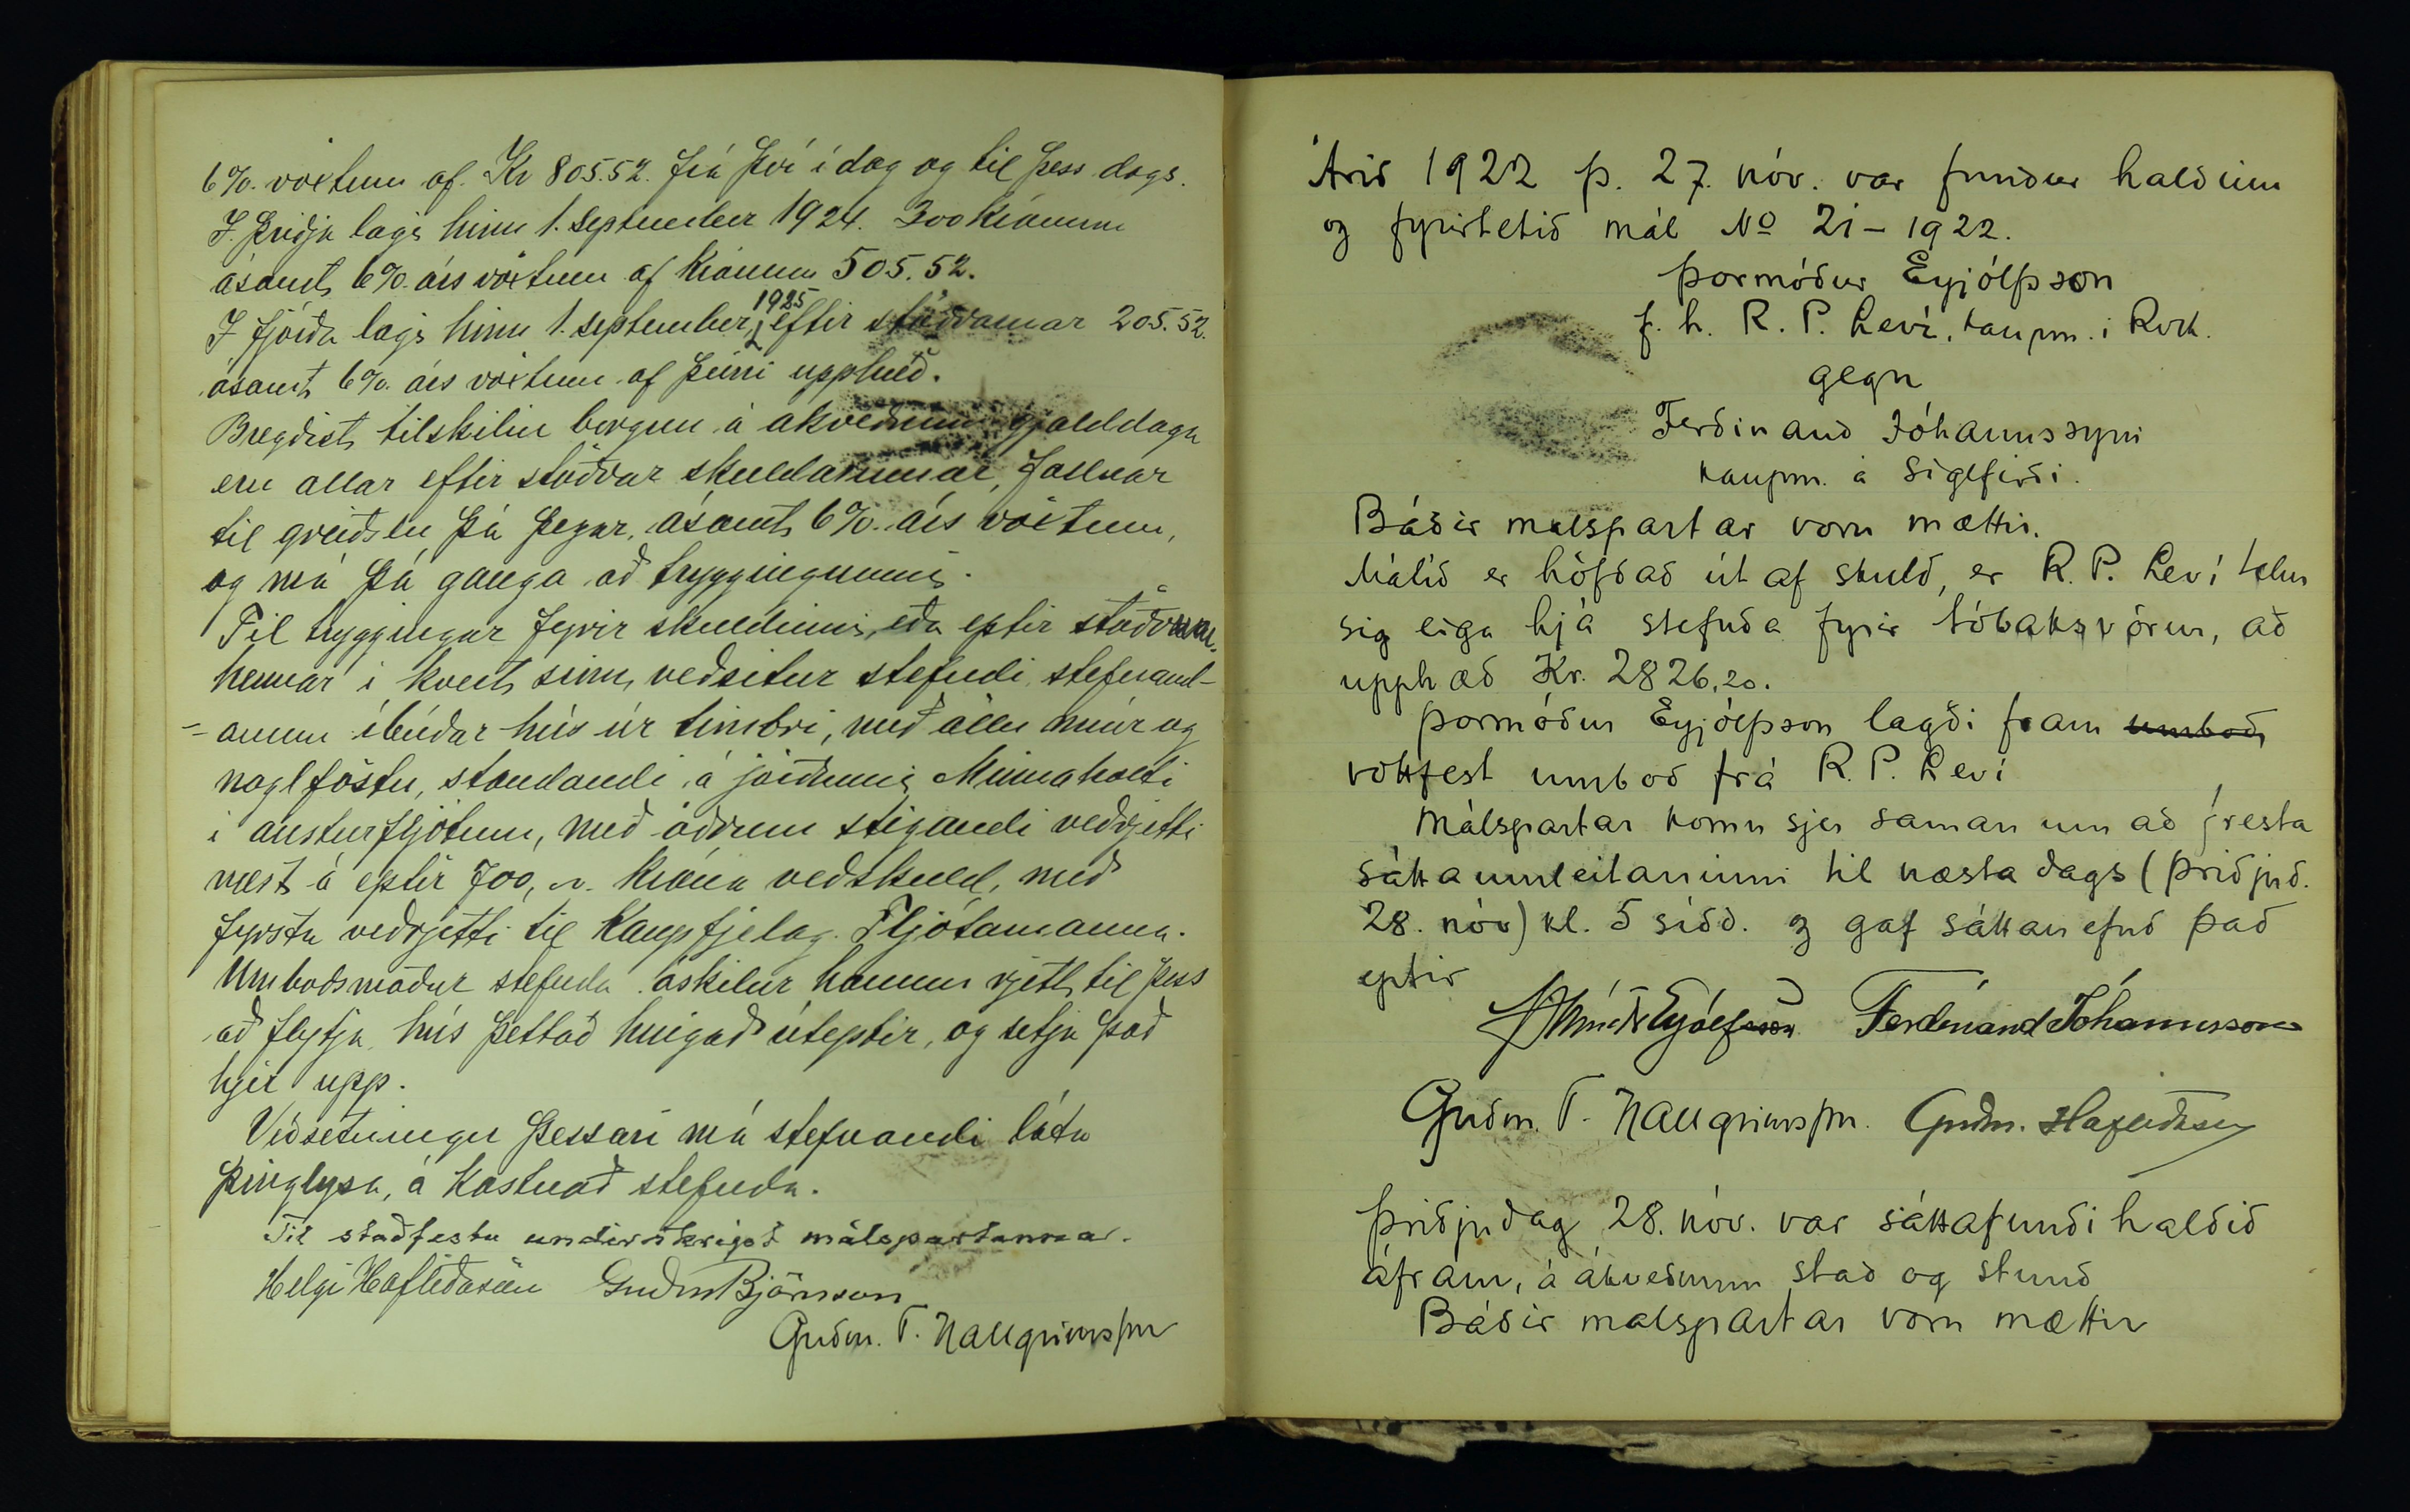 6%. vöxtum af Kr 805.52. frá því í dag og til þess dags.
Í þriðja lagi hinn 1. September 1924. 300 krónum
ásamt 6%. árs vöxtum af krónum 505.52.
Í fjórða lagi hinn 1. september 1925 eftir stöðvarnar 205.52.
ásamt 6%. árs vöxtum af þeirri upphæð.
Bregðist tilskilin borgun á akveðnum gjalddaga
eru allar eftir stöðvar skuldarinnar, fallnar
til greiðslu þá þegar, ásamt 6%. árs vöxtum,
og má þá ganga að tryggingunni.
Til tryggingar fyrir skuldinni, eða eptir stöðvum
hennar í hvert sinn, veðsetur stefndi stefnand-
-anum íbúðar hús úr timbri, með öllu múr og
naglföstu, standandi á jörðunni Minnaholti
í austurfljótum, með öðrum stigandi veðrjetti
næst á eptir 700,00 króna veðskuld, með
fyrsta veðrjetti til Kaupfjelag. Fljótamanna.
Umboðsmaður stefnda áskilur honum rjett til þess
að flytja hús þettað hingað úteptir, og setja það
hjer upp.
Veðsetningu þessari má stefnandi láta
þinglysa, á kostnað stefnda.
Til staðfestu undirskrift málspartanna.
Helgi Hafliðason GuðmBjörnson
Guðm. T. Hallgrimsson
Árið 1922 þ. 27. nóv. var fundur haldinn
og fyrirtekið mál No 21-1922.
Þormóður Eyjólfsson
f. h. R. P. Leví, kaupm. í Rvk.
gegn
Ferdinand Jóhannssyni
kaupm. á Siglfirði.
Báðir malspartar voru mættir.
Málið er höfðað út af skuld, er R. P. Leví telur
sig eiga hjá stefnda fyrir tóbaksvörur, að
upphæð Kr. 2826,20.
Þormóður Eyjólfsson lagði fram umboð
vottfest umboð frá R. P. Leví
Málspartar komu sjer saman um að fresta
sáttaumleitaninni til næsta dags (þriðjud.
28. nóv) kl. 5 síðd. og gaf sáttanefnd það
eptir
Þormóðr Eyjólfsson Ferdinand Jóhannsson
Guðm. T. Hallgrimsson. Guðm. Hafliðason
Þriðjudag 28. nóv. var sáttafundi haldið
áfram, á ákveðnum stað og stund
Báðir malspartar voru mættir